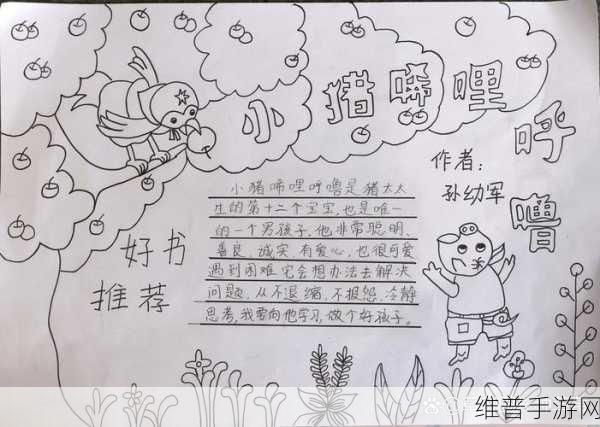 小猪唏哩呼噜
作者：
孙幼军
好书
推荐
小猪唏哩呼噜是猪太太
生的第十二个宝宝，也是唯一
的一个男孩子，他非常聪明、
善良、诚实、有爱心，也很可爱
遇到困难它会想办法去解决
问题，从不退缩，不报怨，冷静
思考，我要向他学习，做个好孩子。
维普手游网